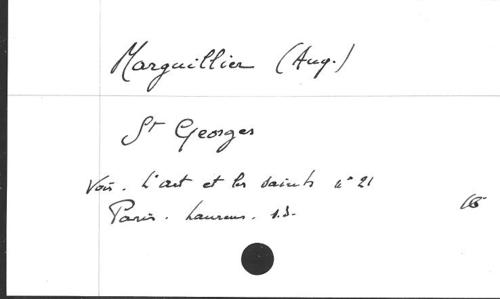 Marguillier (Aug.)
St Georges
Voir. L'art et les saints n° 21
Paris. Laurens. s.d.